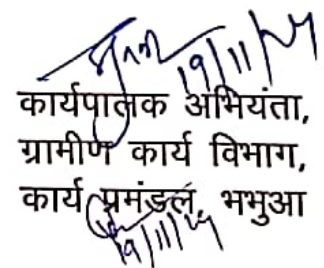 19/11/24
कार्यपालक अभियंता,
ग्रामीण कार्य विभाग,
कार्य प्रमंडल, भभुआ
19/11/24